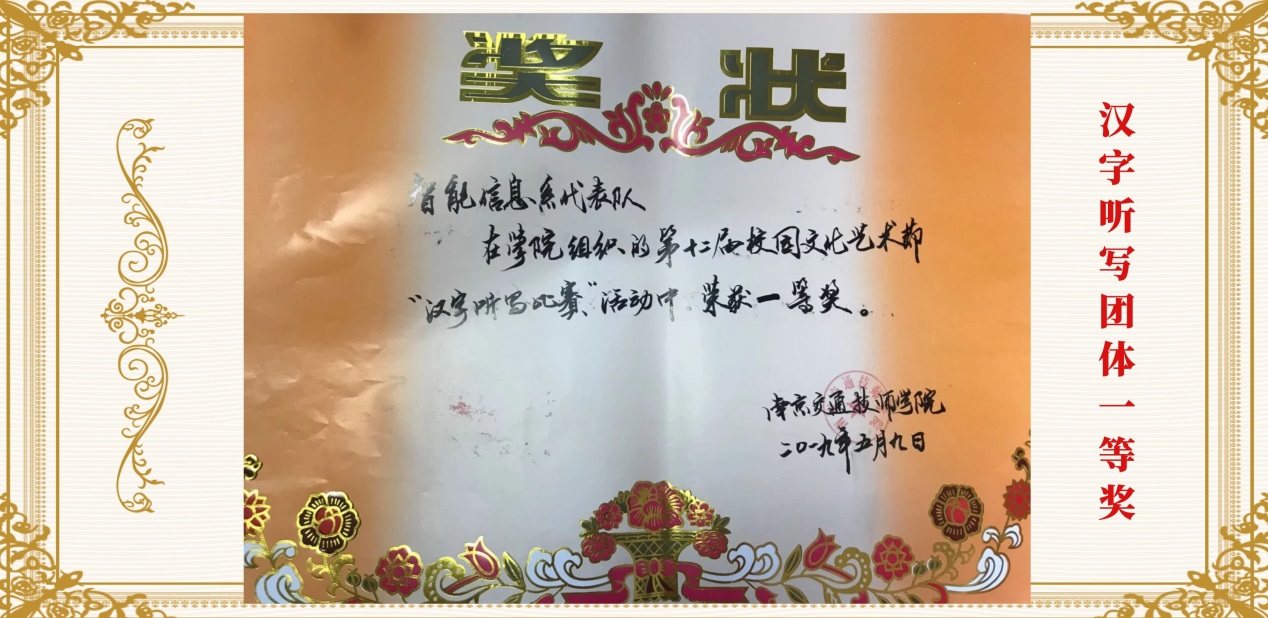 奖状
智能信息系代表队
在学院组织的第十二届校园文化艺术节
“汉字听写比赛”活动中 荣获一等奖。
南京交通技师学院
二〇一九年五月九日
汉字听写团体一等奖